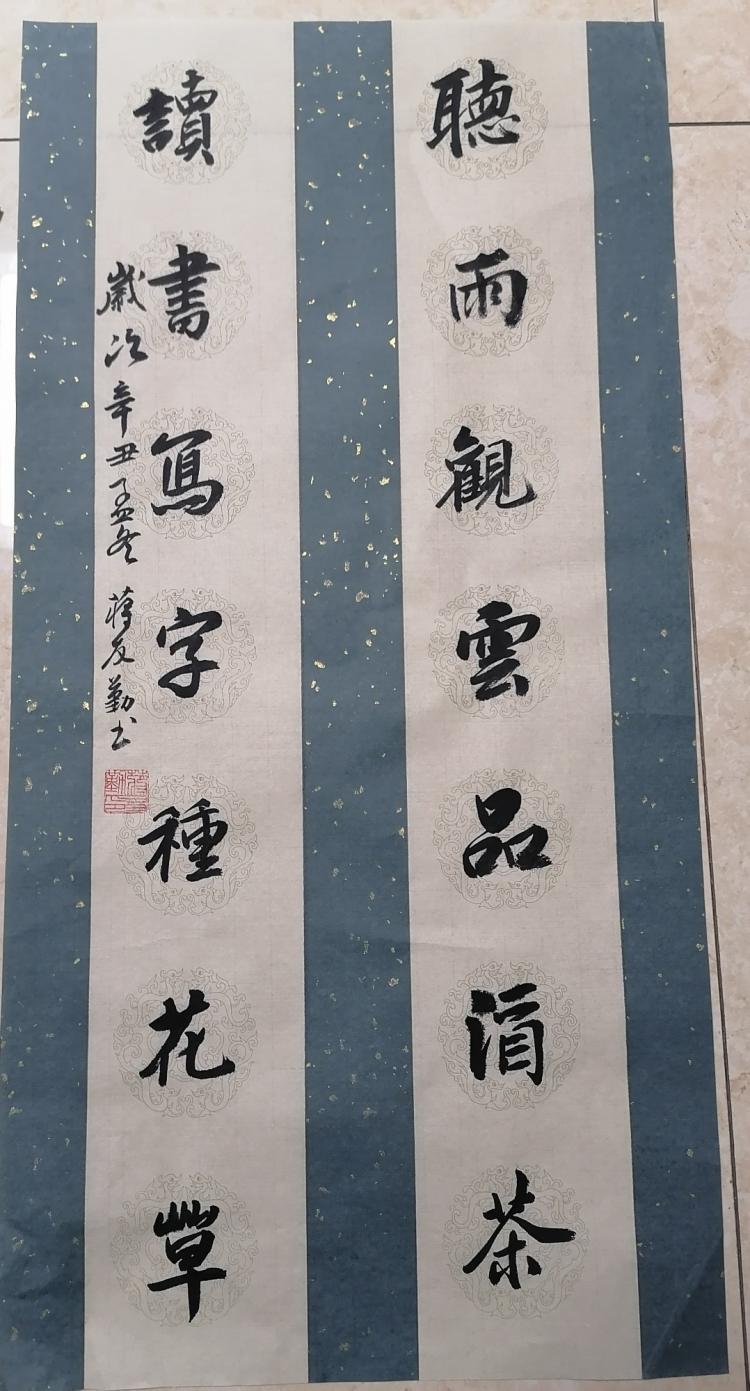 聽雨觀雲品酒茶
讀書寫字種花草
歲次辛丑孟冬 蔣友勤书